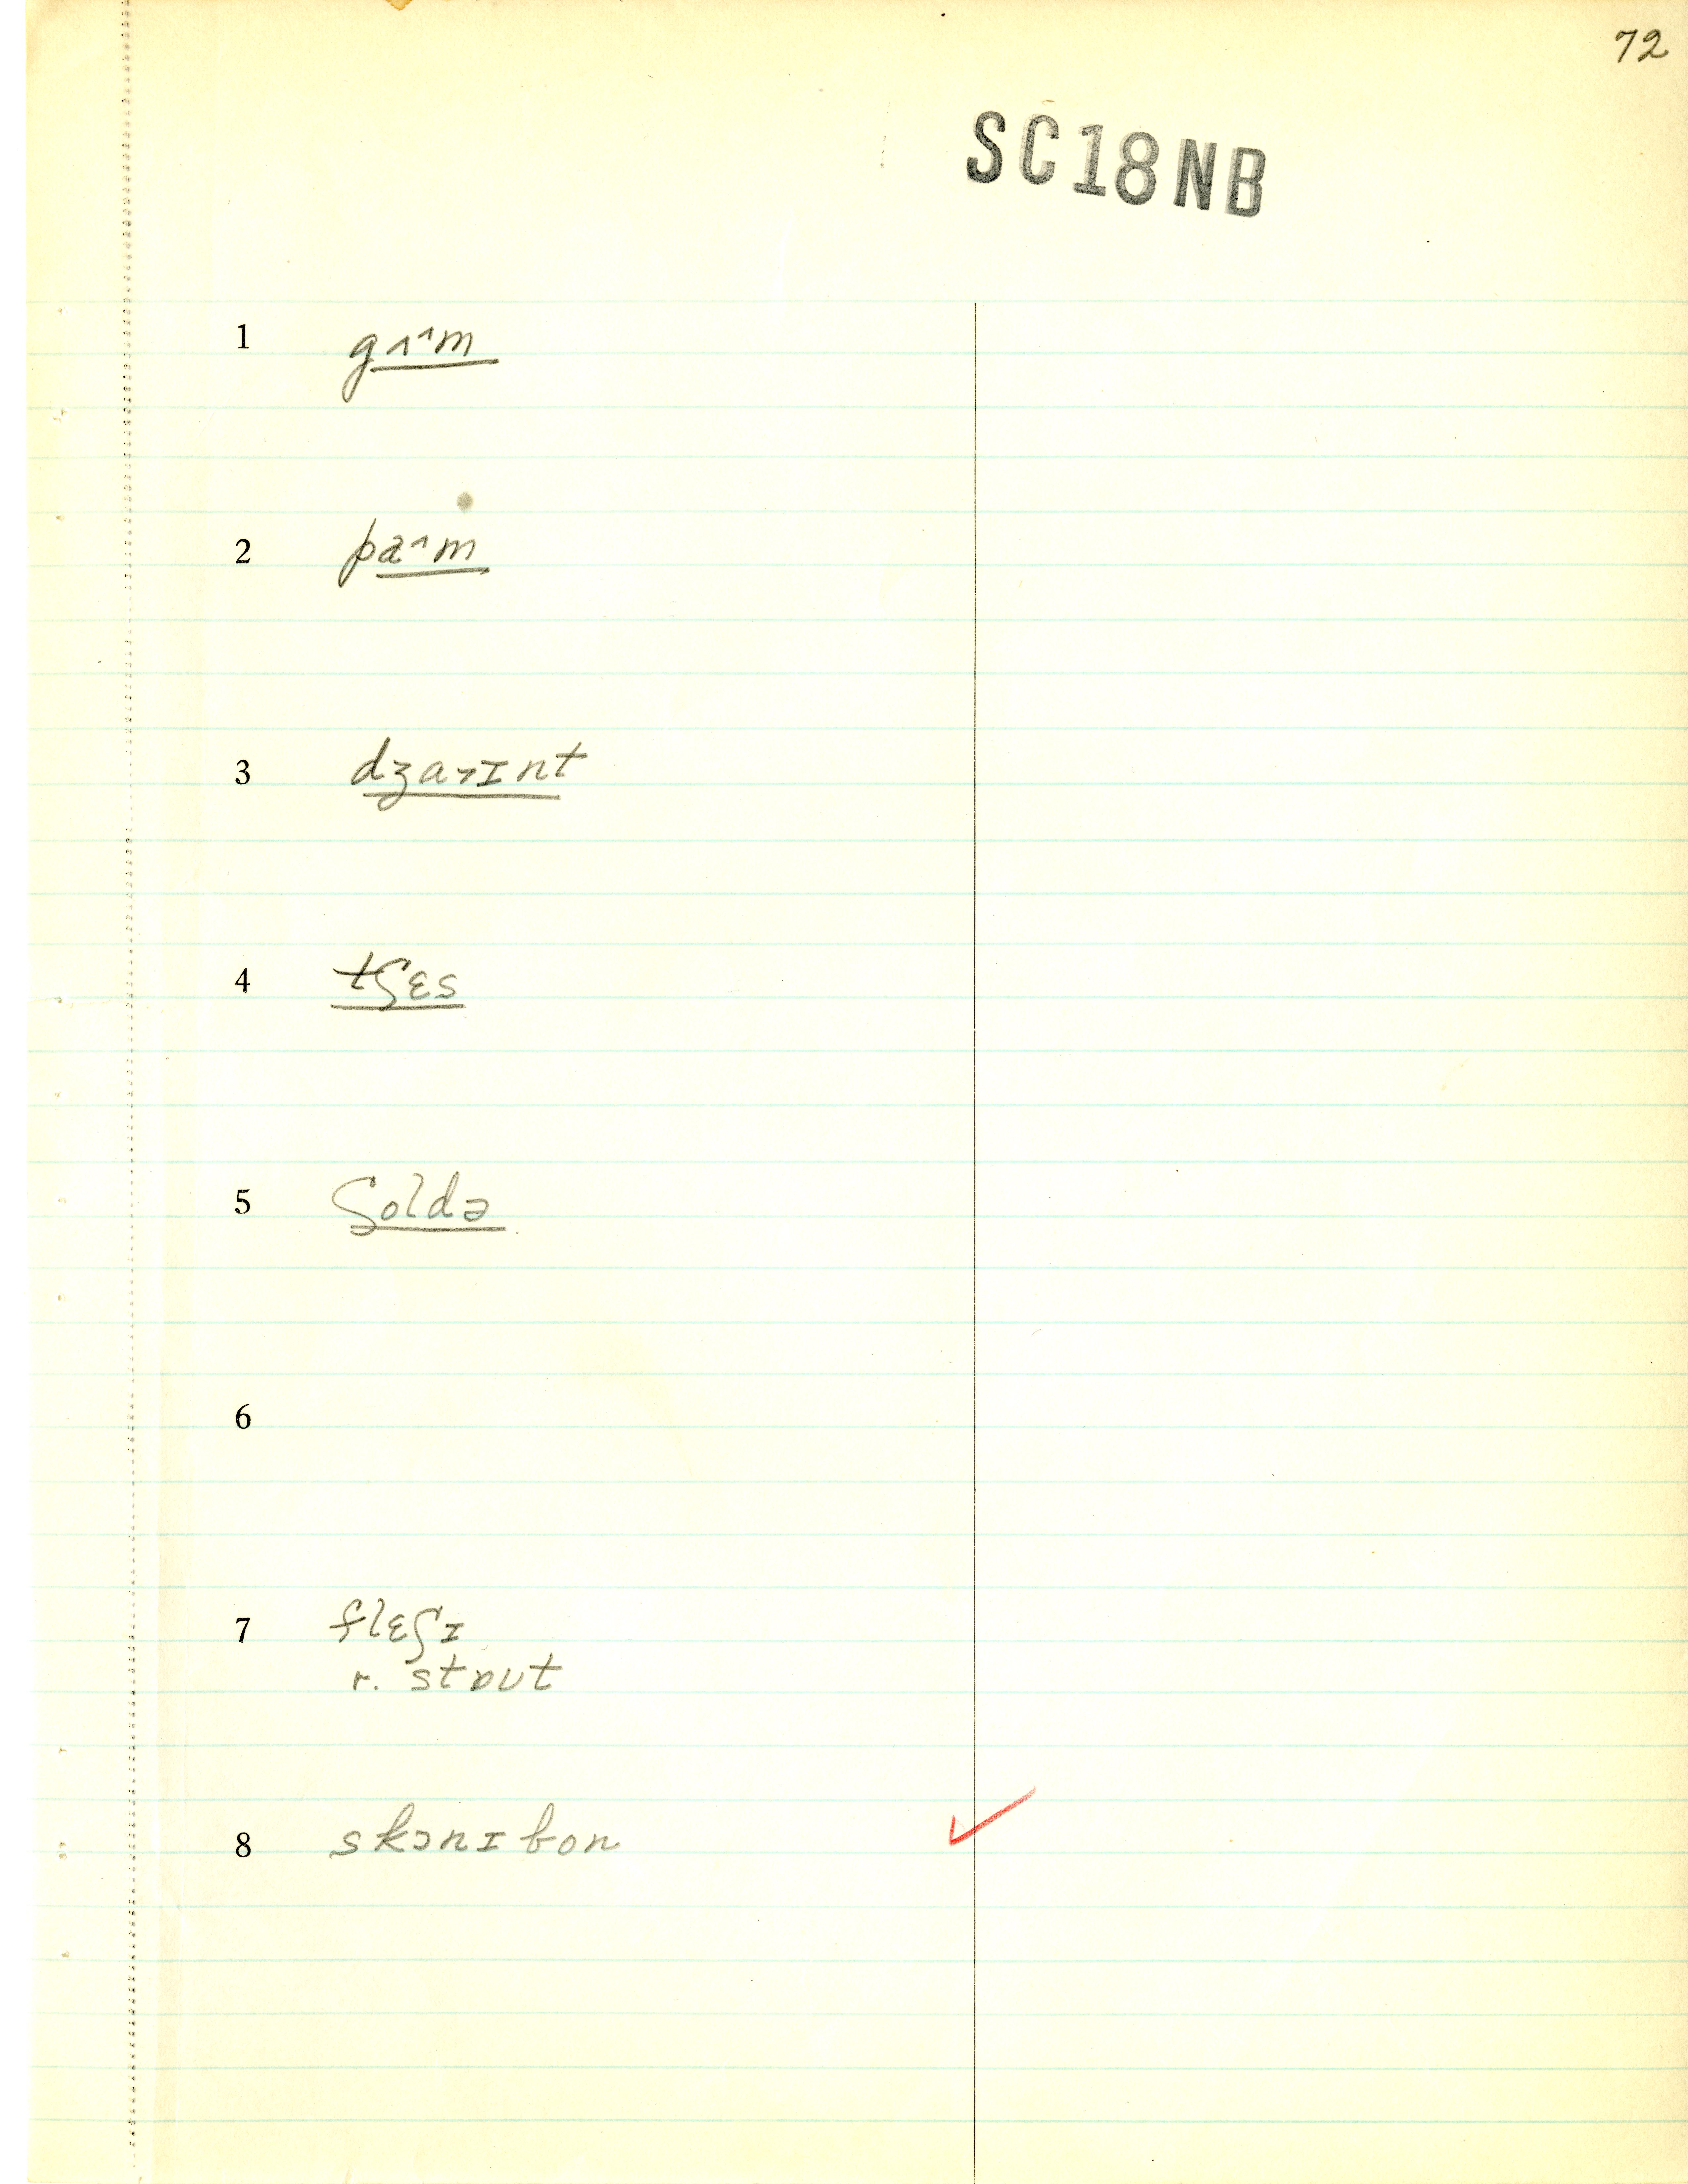 72
SC18NB
1 gʌ^m
2 pa^m
3 dʒaɪnt
4 tʃɛs
5 ʃoldə
6
7 flɛʃɪ
r. stɒut
8 skɔnɪ bon